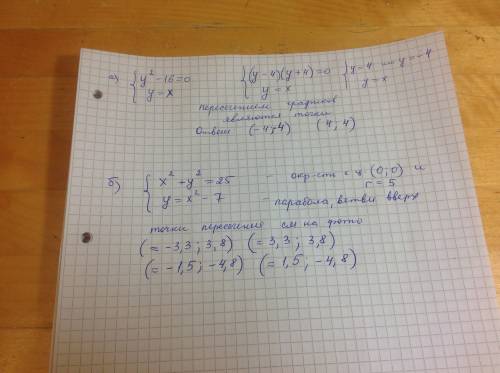 а) { y² - 16 = 0 { (y - 4)(y + 4) = 0 { y = 4 или y = -4
y = x y = x y = x
пересечением графиков
являются точки
Ответ (-4; -4) (4; 4)
б) { x² + y² = 25 - окр-сть с ц. (0; 0) и r = 5
y = x² - 7 - парабола, ветви вверх
точки пересечения см на фото
(≈ -3,3 ; 3,8) (≈ 3,3 ; 3,8)
(≈ -1,5 ; -4,8) (≈ 1,5 ; -4,8)